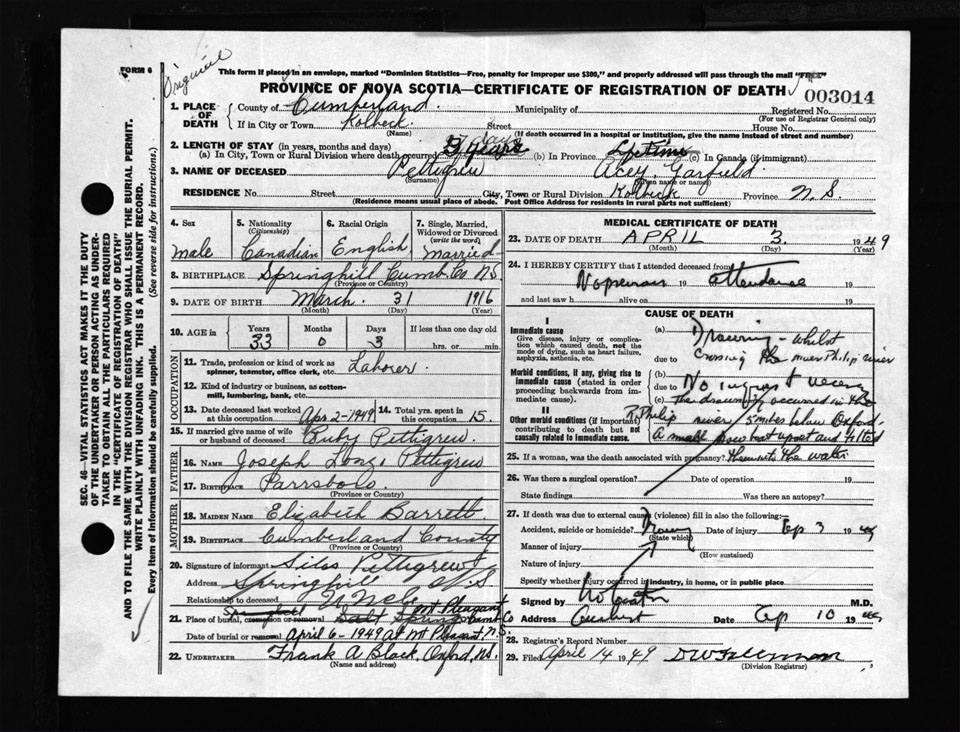 FORM 6
Original
This form if placed in an envelope, marked "Dominion Statistics—Free, penalty for improper use $300," and properly addressed will pass through the mail "FREE"
PROVINCE OF NOVA SCOTIA—CERTIFICATE OF REGISTRATION OF DEATH
003014
1. PLACE OF DEATH { County of Cumberland. Municipality of Registered No.
(For use of Registrar General only)
If in City or Town Kolbeck. Street House No.
(Name) (If death occurred in a hospital or institution, give the name instead of street and number)
2. LENGTH OF STAY (in years, months and days)
(a) In City, Town or Rural Division where death occurred 3 years days (b) In Province Lifetime (c) In Canada (if immigrant)
3. NAME OF DECEASED Pettigrew Acey Garfield.
(Surname) (Given name or names)
RESIDENCE No. Street City, Town or Rural Division Kolbeck Province N.S.
(Residence means usual place of abode. Post Office Address for residents in rural parts not sufficient)
SEC. 46—VITAL STATISTICS ACT MAKES IT THE DUTY
OF THE UNDERTAKER OR PERSON ACTING AS UNDER-
TAKER TO OBTAIN ALL THE PARTICULARS REQUIRED
IN THE "CERTIFICATE OF REGISTRATION OF DEATH"
AND TO FILE THE SAME WITH THE DIVISION REGISTRAR WHO SHALL ISSUE THE BURIAL PERMIT.
WRITE PLAINLY WITH UNFADING INK. THIS IS A PERMANENT RECORD.
Every item of information should be carefully supplied. (See reverse side for instructions.)
4. Sex 5. Nationality 6. Racial Origin 7. Single, Married,
(Citizenship) Widowed or Divorced
(write the word)
male Canadian English Married
8. BIRTHPLACE Springhill Cumb. Co. N.S.
(Province or Country)
9. DATE OF BIRTH March. 31 1916
(Month) (Day) (Year)
10. AGE in { Years Months Days If less than one day old
33 0 3 hrs. or min.
OCCUPATION
11. Trade, profession or kind of work as Laborer.
spinner, teamster, office clerk, etc.
12. Kind of industry or business, as cotton-
mill, lumbering, bank, etc.
13. Date deceased last worked 14. Total yrs. spent
at this occupation Apr 2-1949 at this occupation 15.
15. If married give name of wife
or husband of deceased Ruby Pettigrew.
FATHER
16. NAME Joseph Pettigrew
17. BIRTHPLACE Parrsboro.
(Province or Country)
MOTHER
18. MAIDEN NAME Elizabeth Barrett.
19. BIRTHPLACE Cumberland County
(Province or Country)
20. Signature of informant Silas Pettigrew
Address Springhill N.S.
Relationship to deceased Uncle
Mt Pleasant
21. Place of burial, cremation or removal Salt Springs Cumb Co
Date of burial or removal April 6-1949 at Mt Pleasant, N.S.
22. UNDERTAKER Frank A Black, Oxford, N.S.
(Name and address)
MEDICAL CERTIFICATE OF DEATH
23. DATE OF DEATH APRIL 3. 1949
(Month) (Day) (Year)
24. I HEREBY CERTIFY that I attended deceased from
No previous 19 attendance 19
and last saw h alive on 19
CAUSE OF DEATH
I
Immediate cause (a) Drowning - whilst
Give disease, injury or complica-
tion which caused death, not the
mode of dying, such as heart failure,
asphyxia, asthenia, etc.
due to crossing the river Philip river
Morbid conditions, if any, giving rise to (b)
immediate cause (stated in order
proceeding backwards from im-
mediate cause).
due to No inquest necessary
(c) The drowning occurred in the
II
Other morbid conditions (if important)
contributing to death but not
causally related to immediate cause.
R. Philip river 5 miles below Oxford.
A small row boat upset and
25. If a woman, was the death associated with pregnancy? the water
26. Was there a surgical operation? Date of operation 19
State findings Was there an autopsy?
27. If death was due to external cause (violence) fill in also the following:—
Accident, suicide or homicide? Drowning Date of injury Ap 3 1949
(State which)
Manner of injury
(How sustained)
Nature of injury
Specify whether injury occurred in industry, in home, or in public place
Signed by M.D.
Address Date Ap 10 1949
28. Registrar's Record Number
29. Filed April 14 1949
(Division Registrar)